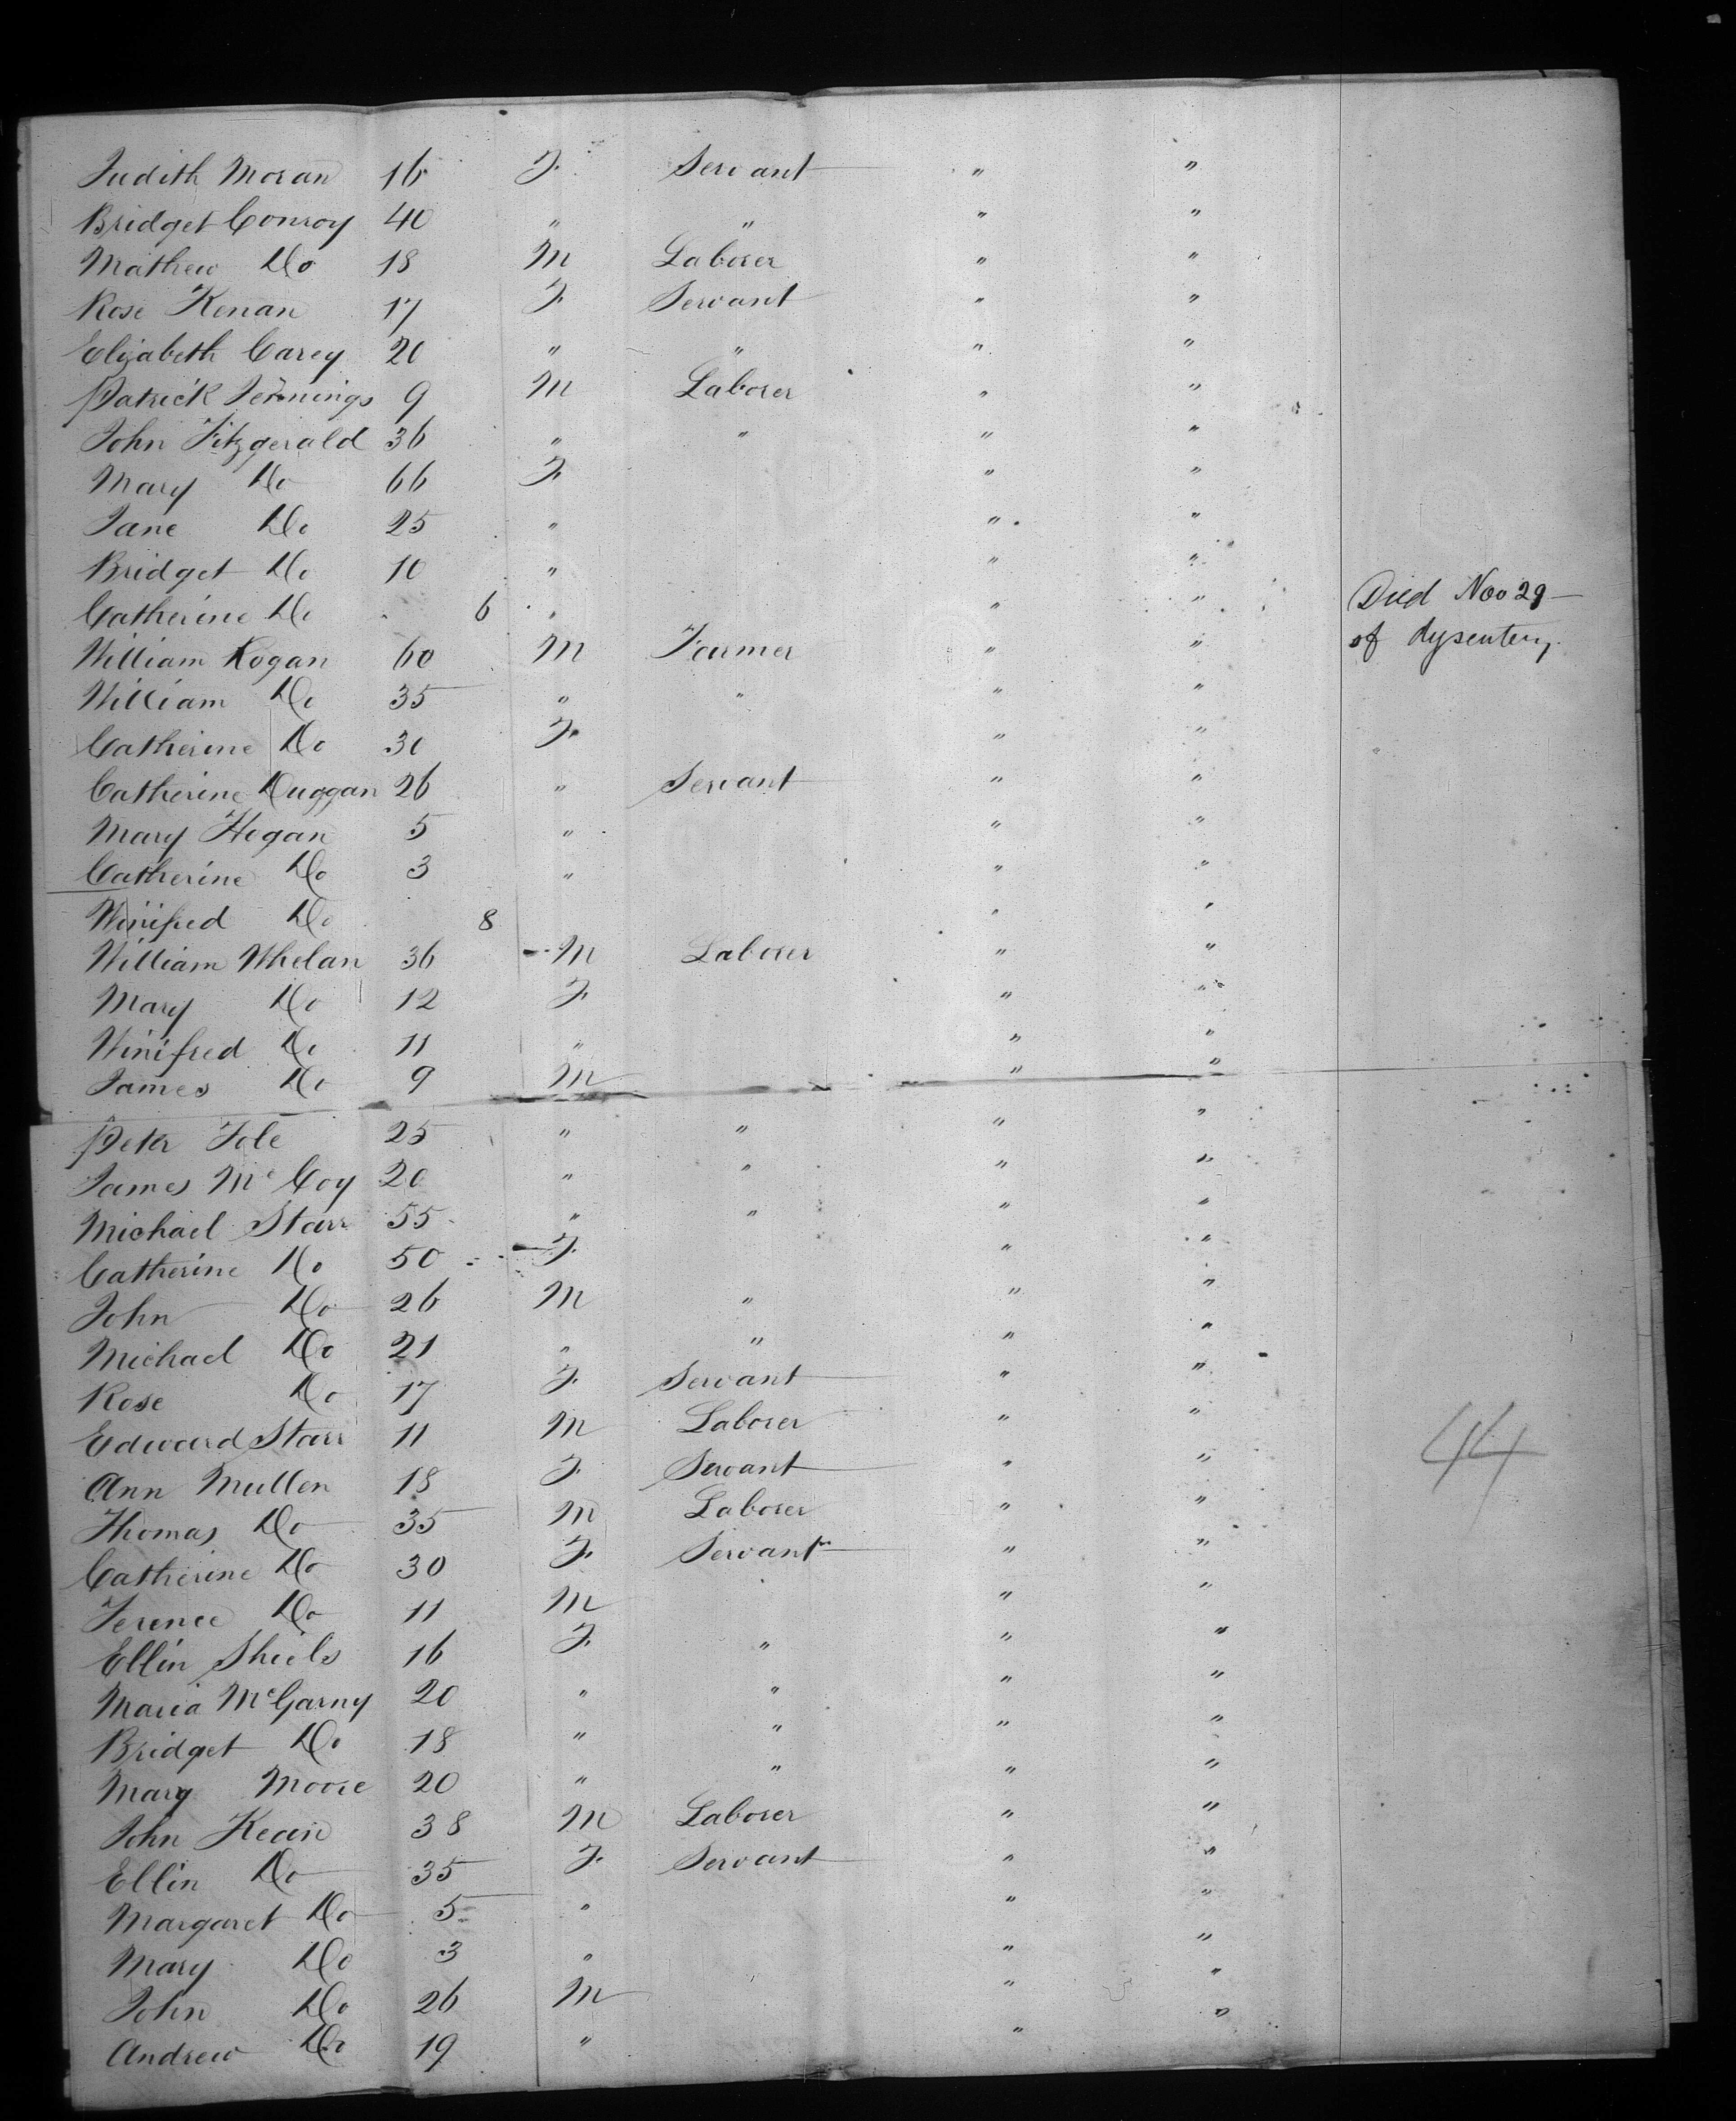 Judith Moran 16 F. Servant " "
Bridget Conroy 40 " " " "
Mathew Do 18 M Laborer " "
Rose Kenan 17 F. Servant " "
Elizabeth Carey 20 " " " "
Patrick Jennings 9 M Laborer " "
John Fitzgerald 36 " " " "
Mary Do 66 F. " "
Jane Do 25 " " "
Bridget Do 10 " " "
Catherine Do 6 " " " Died Nov 29
William Hogan 60 M Farmer " " of dysentery.
William Do 35 " " " "
Catherine Do 30 F. " "
Catherine Duggan 26 " Servant " "
Mary Hogan 5 " " "
Catherine Do 3 " " "
Winifred Do 8 " "
William Whelan 36 M Laborer " "
Mary Do 12 F. " "
Winifred Do 11 " " "
James Do 9 M " "
Peter Tole 25 " " " "
James McCoy 20 " " " "
Michael Starr 55 " " " "
Catherine Do 50 F. " "
John Do 26 M " " "
Michael Do 21 " " " "
Rose Do 17 F. Servant " "
Edward Starr 11 M Laborer " "
Ann Mullen 18 F. Servant " "
44
Thomas Do 35 M Laborer " "
Catherine Do 30 F. Servant " "
Terence Do 11 M " "
Ellin Shiels 16 F. " " "
Maria McGarny 20 " " " "
Bridget Do 18 " " " "
Mary Moore 20 " " " "
John Kean 38 M Laborer " "
Ellin Do 35 F. Servant " "
Margaret Do 5 " " "
Mary Do 3 " " "
John Do 26 M " "
Andrew Do 19 " " "